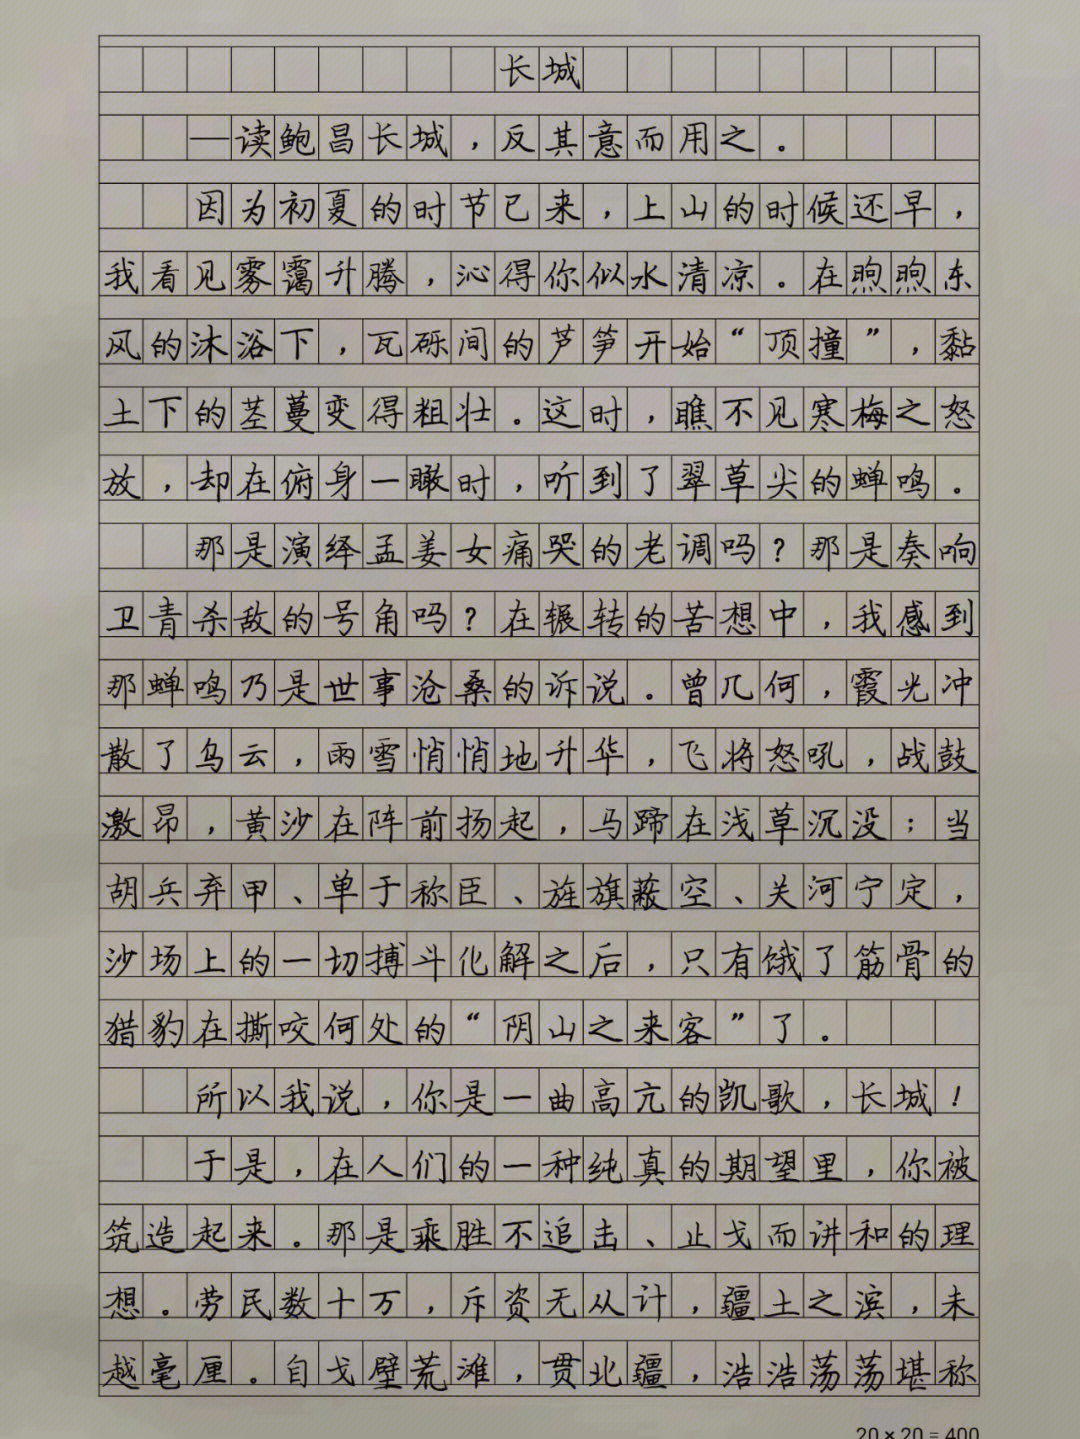 长城
—读鲍昌长城，反其意而用之。
因为初夏的时节已来，上山的时候还早，
我看见雾霭升腾，沁得你似水清凉。在煦煦东
风的沐浴下，瓦砾间的芦笋开始“顶撞”，黏
土下的茎蔓变得粗壮。这时，瞧不见寒梅之怒
放，却在俯身一瞰时，听到了翠草尖的蝉鸣。
那是演绎孟姜女痛哭的老调吗？那是奏响
卫青杀敌的号角吗？在辗转的苦想中，我感到
那蝉鸣乃是世事沧桑的诉说。曾几何，霞光冲
散了乌云，雨雪悄悄地升华，飞将怒吼，战鼓
激昂，黄沙在阵前扬起，马蹄在浅草沉没；当
胡兵弃甲、单于称臣、旌旗蔽空、关河宁定，
沙场上的一切搏斗化解之后，只有饿了筋骨的
猎豹在撕咬何处的“阴山之来客”了。
所以我说，你是一曲高亢的凯歌，长城！
于是，在人们的一种纯真的期望里，你被
筑造起来。那是乘胜不追击、止戈而讲和的理
想。劳民数十万，斥资无从计，疆土之滨，未
越毫厘。自戈壁荒滩，贯北疆，浩浩荡荡堪称
20×20=400